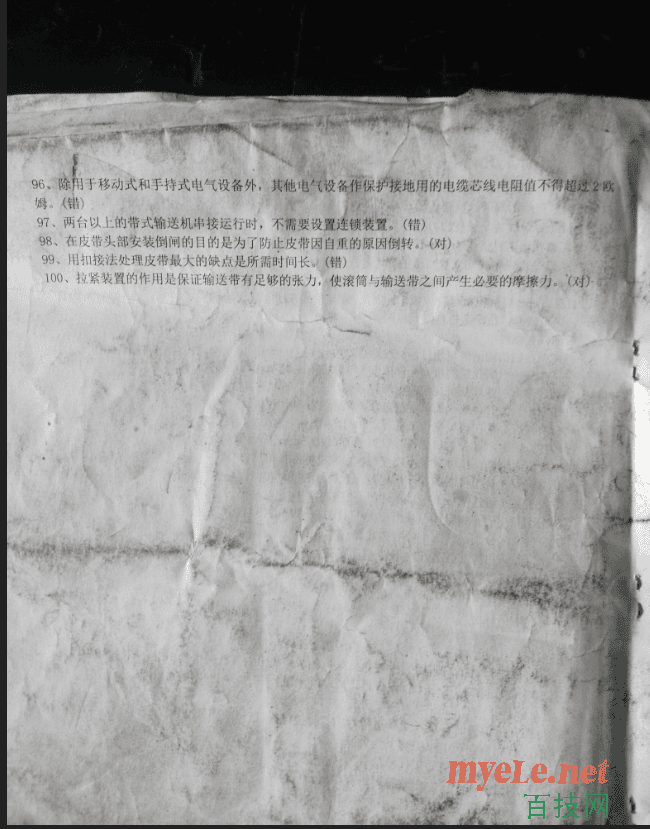 96、除用于移动式和手持式电气设备外，其他电气设备作保护接地用的电缆芯线电阻值不得超过2欧
姆。(错)
97、两台以上的带式输送机串接运行时，不需要设置连锁装置。(错)
98、在皮带头部安装倒闸的目的是为了防止皮带因自重的原因倒转。(对)
99、用扣接法处理皮带最大的缺点是所需时间长。(错)
100、拉紧装置的作用是保证输送带有足够的张力，使滚筒与输送带之间产生必要的摩擦力。(对)
myeLe.net
百技网